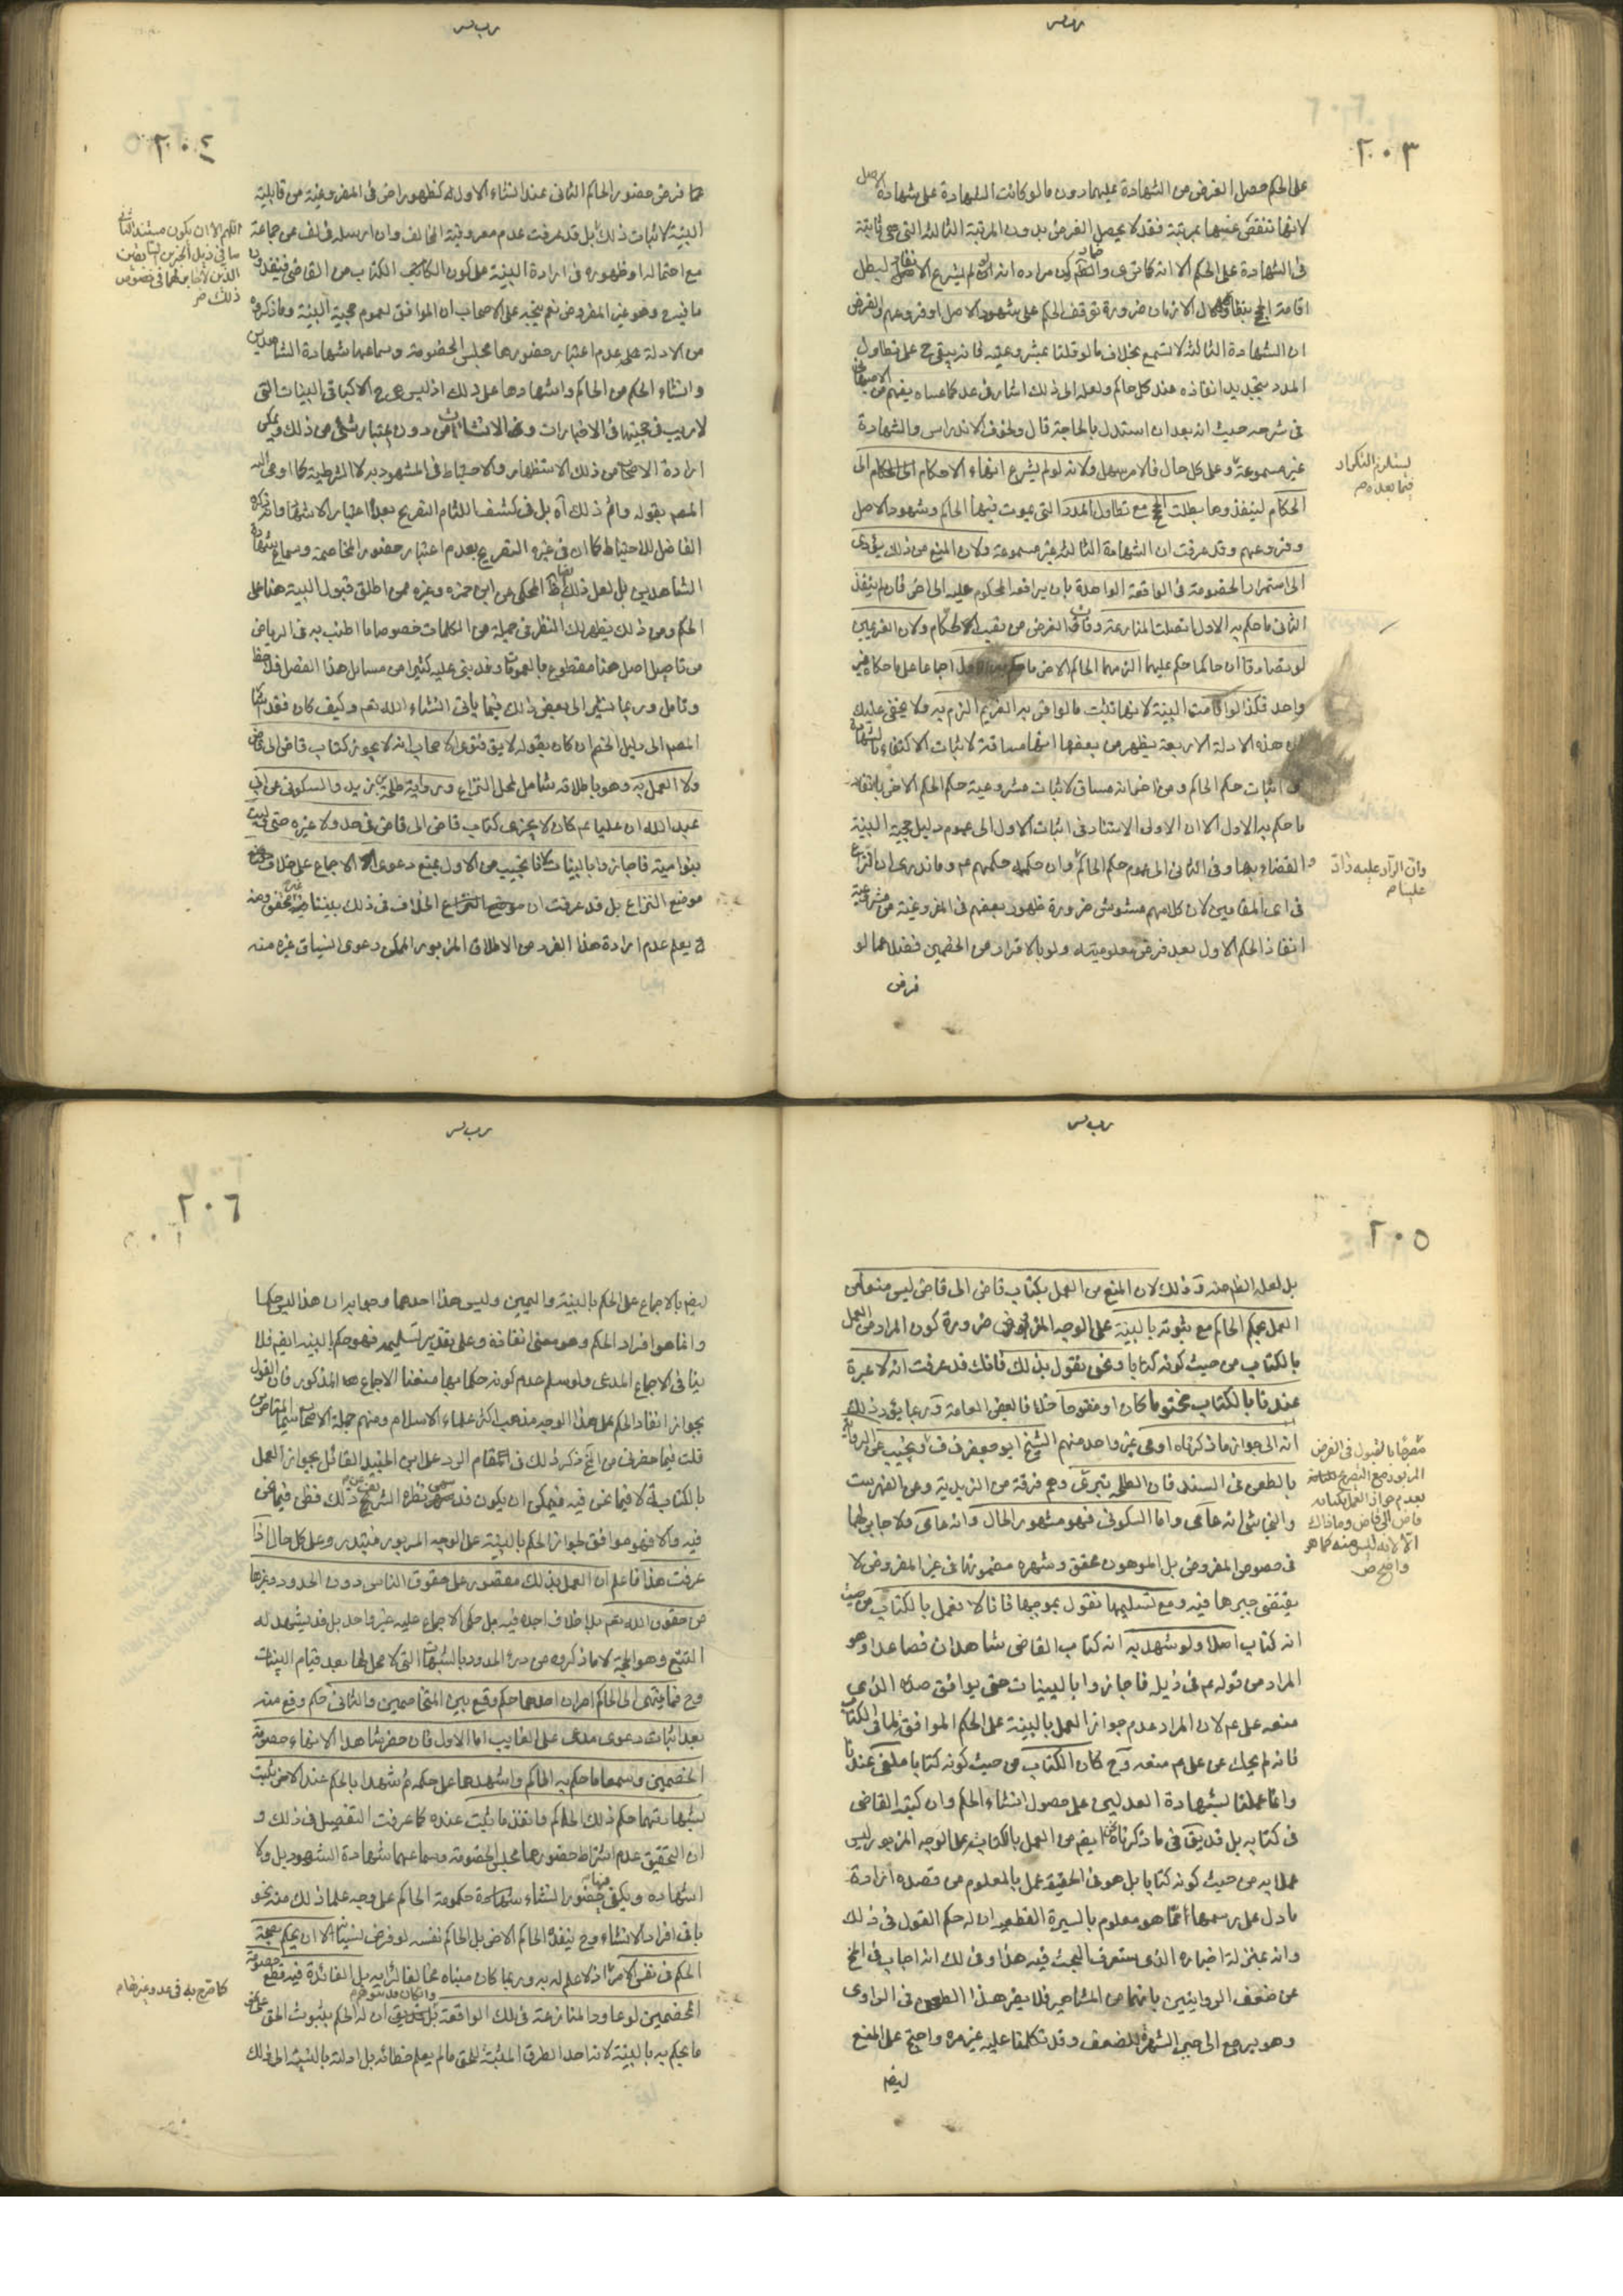 ٢٠٣
على الحكم حصل الغرض من الشهادة عليهما دون ما لو كانت الشهادة على شهادة
لانها تنقص عنها بمرتبة فقد لا يحصل الغرض بدون المرتبة الثالثة التى هى ثابتة
فى الشهادة على الحكم الا انه كما ترى كون مراده انه لو لم يشرع لبطل
اقامة الحجج الازمان ضرورة توقف الحكم على شهود الاصل او فروعهم والفرض
ان الشهادة الثالثة لا تسمع بخلاف ما لو قلنا بمشروعيته فانه يبقى ح على تطاول
المدد بتجديد انفاذه عند كل حاكم ولعله الى ذلك اشار فى عد كما عساه يفهم من الاصبهانى
فى شرحه حيث انه بعد ان استدل بالحاجة قال ولخوف الاندراس والشهادة
غير مسموعة وعلى كل حال فالامر سهل ولانه لو لم يشرع انهاء الاحكام الى
الحكام لينفذوها بطلت الحجج مع تطاول المدد التى يموت فيها الحاكم وشهود الاصل
وفروعهم وقد عرفت ان الشهادة الثالثة غير مسموعة ولان المنع من ذلك يؤدى
الى استمرار الخصومة فى الواقعة الواحدة بان يرافعه المحكوم عليه الى اخر فان لم ينفذ
الثانى ما حكم به الاول اتصلت المنازعة وفات الغرض من نصب الاحكام ولان الغريمين
لو تصادقا ان حاكما حكم عليهما الزمهما الحاكم الاخر ما اجماعا على ما حكاه غير
واحد فكذا لو قامت البينة لانها تثبت ما لو اقر به الغريم الزم به ولا يخفى عليك
ان هذه الادلة الاربعة يظهر من بعضها انها مساقة لاثبات الاكتفاء بالشهادة
فى اثبات حكم الحاكم ومن اخر انه مساق لاثبات مشروعية حكم الحاكم الاخر بانفاذ
ما حكم به الاول الا ان الاولى الاستناد فى اثبات الاول الى عموم دليل حجية البينة
والقضاء بها وفى الثانى الى عموم حكم الحاكم وان حكمه حكمهم ع وما ندرى ان النزاع
فى اى المقامين لان كلامهم مشوش ضرورة ظهور بعضهم فى المفروغية من مشروعية
انفاذ الحكم الاول بعد فرض معلوميته ولو بالاقرار من الخصمين فضلا عما لو
فرض
يستلزم التكرار
فيما بعده صح
وان الراد عليه راد
علينا صح
٢٠٤
عما فرض حضور الحاكم الثانى عند انشاء الاول له كظهور اخر فى المفروغية من قابلية
البينة لاثبات ذلك بل قد عرفت عدم معروفية المخالف وان ارسله فى لف عن جماعة
مع احتماله او ظهوره فى ارادة البينة على كون الكتاب من القاضى فينفذ
ما فيه وهو غير المفروض نعم يتجه على الاصحاب ان الموافق لعموم حجية البينة وما ذكروه
من الادلة على عدم اعتبار حضورها مجلس الخصومة وسماعها شهادة الشاهدين
وانشاء الحكم من الحاكم واشهادهما على ذلك اذ ليس هى ح الا كباقى البينات التى
لا ريب فى حجيتها فى الاخبارات وفى الانشاءات من دون اعتبار شىء من ذلك ويمكن
ارادة الاصحاب من ذلك الاستظهار والاحتياط فى المشهود به لا الشرطية كما اومى اليه
المصم بقوله واتم ذلك اه بل فى كشف اللثام التفريع بعدم اعتبار الاشهاد وانما ذكره
الفاضل للاحتياط كما ان فى غيره التفريع بعدم اعتبار حضور المخاصمة وسماع شهادة
الشاهدين بل لعل ذلك ايضا ظ المحكى عن ابن حمزه وغيره ممن اطلق قبول البينة هنا على
الحكم ومن ذلك يظهر لك النظر فى جملة من الكلمات خصوصا ما اطنب به فى الرياض
من تاصيل اصل هنا مقطوع بالعمومات وقد بنى عليه كثيرا من مسائل هذا الفصل فلاحظ
وتامل وربما نشير الى بعض ذلك فيما ياتى انشاء الله تعم وكيف كان فقد اشار
المصم الى دليل الخصم ان كان بقوله لا يق فتوى الاصحاب انه لا يجوز كتاب قاض الى قاض
ولا العمل به وهو باطلاقه شامل لمحل النزاع ورواية طلحة بن زيد والسكونى عن ابى
عبد الله ان عليا عم كان لا يجزى كتاب قاض الى قاض فى حد ولا غيره حتى وليت
بنو امية فاجازوا بالبينات لانا نجيب عن الاول بمنع دعوى الاجماع على خلاف
موضع النزاع بل قد عرفت ان الخلاف فى ذلك بيننا غير محقق ومنه
ح يعلم عدم ارادة هذا الفرد من الاطلاق المزبور الممكن دعوى انسياق غيره منه
اللهم الا ان يكون مستند الثانى
ما فى ذيل الخبرين السابقين
الذين لا جابر لهما فى خصوص
ذلك صح
٢٠٥
بل لعله الظ منه وذلك لان المنع من العمل بكتاب قاض الى قاض ليس منعا من
العمل بحكم الحاكم مع ثبوته بالبينة على الوجه المفروض ضرورة كون المراد من العمل
بالكتاب من حيث كونه كتابا ونحن نقول بذلك فانك قد عرفت انه لا عبرة
عندنا بالكتاب مختوما كان او مفتوحا خلافا لبعض العامة وربما يؤيد ذلك
انه الى جواز ما ذكرناه اومى غير واحد منهم الشيخ ابو جعفر فى ف ونجيب عن الرواية
بالطعن فى السند فان طلحة بتري وهم فرقة من الزيدية وعن الفهرست
والنجاشى انه عامى واما السكونى فهو مشهور الحال وانه عامى ولا جابر لهما
فى خصوص المفروض بل الموهون محقق وشهره مضمونهما فى غير المفروض لا
يقتضى جبرها فيه ومع تسليمها نقول بموجبها فانا لا نعمل بالكتاب من حيث
انه كتاب اصلا ولو شهد به انه كتاب القاضى شاهدان فصاعدا وهو
المراد من قوله عم فى ذيله فاجازوا بالبينات حتى يوافق صدره الذى
منعه على عم لان المراد عدم جواز العمل بالبينة على الحكم الموافق لما فى الكتاب
فانه لم يحك عن على عم منعه وح كان الكتاب من حيث كونه كتابا ملغى عندنا
وانما عملنا بشهادة العدلين على حصول انشاء الحكم وان كتبه القاضى
فى كتابه بل قد يق فى ما ذكرناه ايضم من العمل بالكتاب على الوجه المزبور ليس
عملا به من حيث كونه كتابا بل هو فى الحقيقة عمل بالمعلوم من قصده ارادة
ما دل على رسمها مما هو معلوم بالسيرة القطعية ان له حكم القول فى ذلك
وانه بمنزلة اخباره الذى ستعرف البحث فيه هذا وفى لك انه اجاب فى الخ
عن ضعف الروايتين بانهما من المشاهير فلا يضر هذا الطعن فى الراوى
وهو يرجع الى جبر الشهرة للضعف وقد تكلمنا عليه غير مرة واحتج على المنع
ايضم
مصرحا بالقبول فى الفرض
المزبور مع التصريح
بعدم جواز العمل بكتاب
قاض الى قاض وما ذاك
الا لانه ليس منه كما هو
واضح صح
٢٠٦
ايضم بالاجماع على الحكم بالبينة واليمين وليس هذا احدهما وجوابه ان هذا ليس حكما
وانما هو اقرار الحكم وهو معنى انفاذه وعلى تقدير تسليمه فهو حكم بالبينه ايضم فلا
ينافى الاجماع المدعى ولو سلم عدم كونه حكما بها منعنا الاجماع المذكور فان القول
بجواز انفاذ الحكم على هذا الوجه مذهب اكثر علماء الاسلام ومنهم جملة الاصحاب سيما المتاخرين
قلت فيما حضرنى من الخ ذكر ذلك فى مقام الرد على ابن الجنيد القائل بجواز العمل
بالكتابة لا فيما نحن فيه فيمكن ان يكون قد سهى نظره الشريف عن ذلك فظن فيما نحن
فيه والا فهو موافق لجواز الحكم بالبينة على الوجه المزبور فتدبر وعلى كل حال اذا
عرفت هذا فاعلم ان العمل بذلك مقصور على حقوق الناس دون الحدود وغيرها
من حقوق الله تعم بلا خلاف اجده فيه بل حكى الاجماع عليه غير واحد بل قد يشهد له
التتبع وهو الحجة لا ما ذكروه من درء الحدود بالشبهات التى لا محل لها بعد قيام البينات
وح فما ينهى الى الحاكم امران احدهما حكم وقع بين المتخاصمين والثانى حكم وقع منه
بعد اثبات دعوى مدع على الغايب اما الاول فان حضر شاهدا الانهاء خصومة
الخصمين وسمعا ما حكم به الحاكم واشهدهما على حكمه ثم شهدا بالحكم عند الاخر ثبت
بشهادتهما حكم ذلك الحاكم وانفذ ما ثبت عنده كما عرفت التفصيل فى ذلك و
ان التحقيق عدم اشتراط حضورهما مجلس الخصومة وسماعهما شهادة الشهود بل ولا
اشهاده ويكفى حضور انشاء حكومة الحاكم على وجه علما ذلك منه نحو
باقى افراد الانشاء وح ينفذ الحاكم الاخر بل الحاكم نفسه لو فرض نسيانه لا ان يحكم بصحة
الحكم فى نفس الامر اذ لا علم له به وربما كان مبناه مخالفا لرايه بل الفائدة فيه قطع خصومة
الخصمين لو عاودا المنازعة فى تلك الواقعة بل ان له الحكم بثبوت الحق على نحو
ما يحكم به بالبينة لانه احد الطرق المثبتة للحق ما لم يعلم خطائه بل ادلته بالنسبة الى ذلك
كما صرح به فى عد وغيره